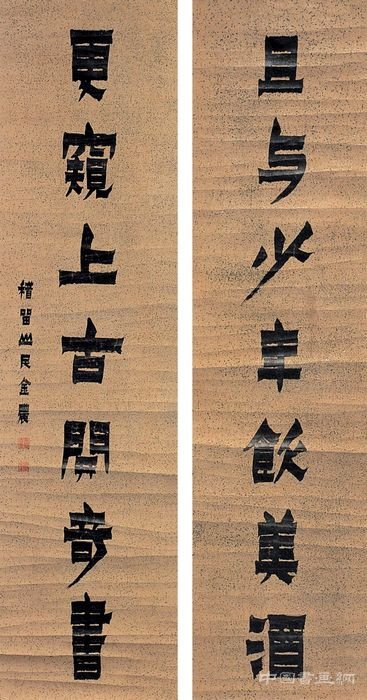 且与少年飲美酒
更窺上古開奇書
稽留山民金農
中國書畫網